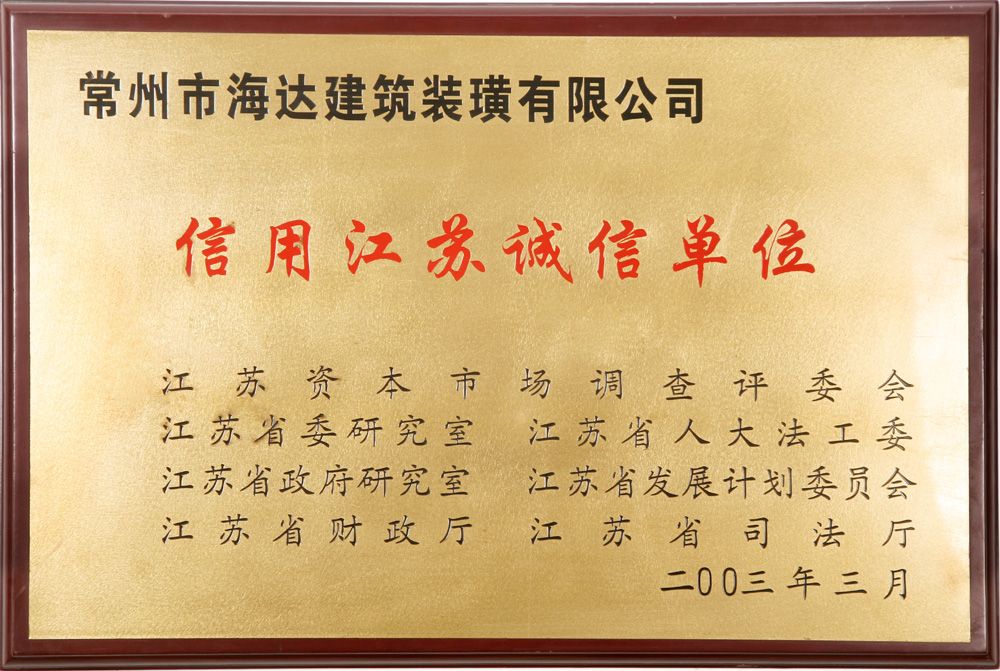 常州市海达建筑装璜有限公司
信用江苏诚信单位
江苏资本市场调查评委会
江苏省委研究室 江苏省人大法工委
江苏省政府研究室 江苏省发展计划委员会
江苏省财政厅 江苏省司法厅
二00三年三月